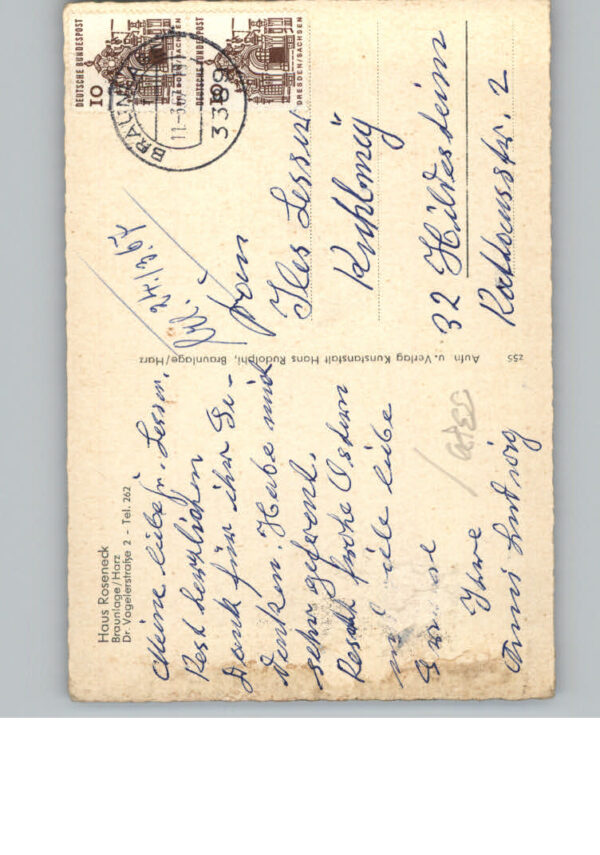 Haus Roseneck
Braunlage/Harz
Dr. Vogelerstraße 2 - Tel. 262
Meine liebe Fr. Lesser.
Rest herzlichen
Dank für ihr Ge-
denken. Habe mich
sehr gefreut.
Recht frohe Ostern
und viele liebe
Grüsse
Ihre
Anni Ludwig
z55 Aufn. u. Verlag Kunstanstalt Hans Rudolphi, Braunlage/Harz
DEUTSCHE BUNDESPOST
10
DRESDEN/SACHSEN
DEUTSCHE BUNDESPOST
10
DRESDEN/SACHSEN
BRAUNLAGE
11.-3.67
3389
24/3.67
Frau
Iles Lesser
Kuhlmey
32 Hildesheim
Rathausstr. 2